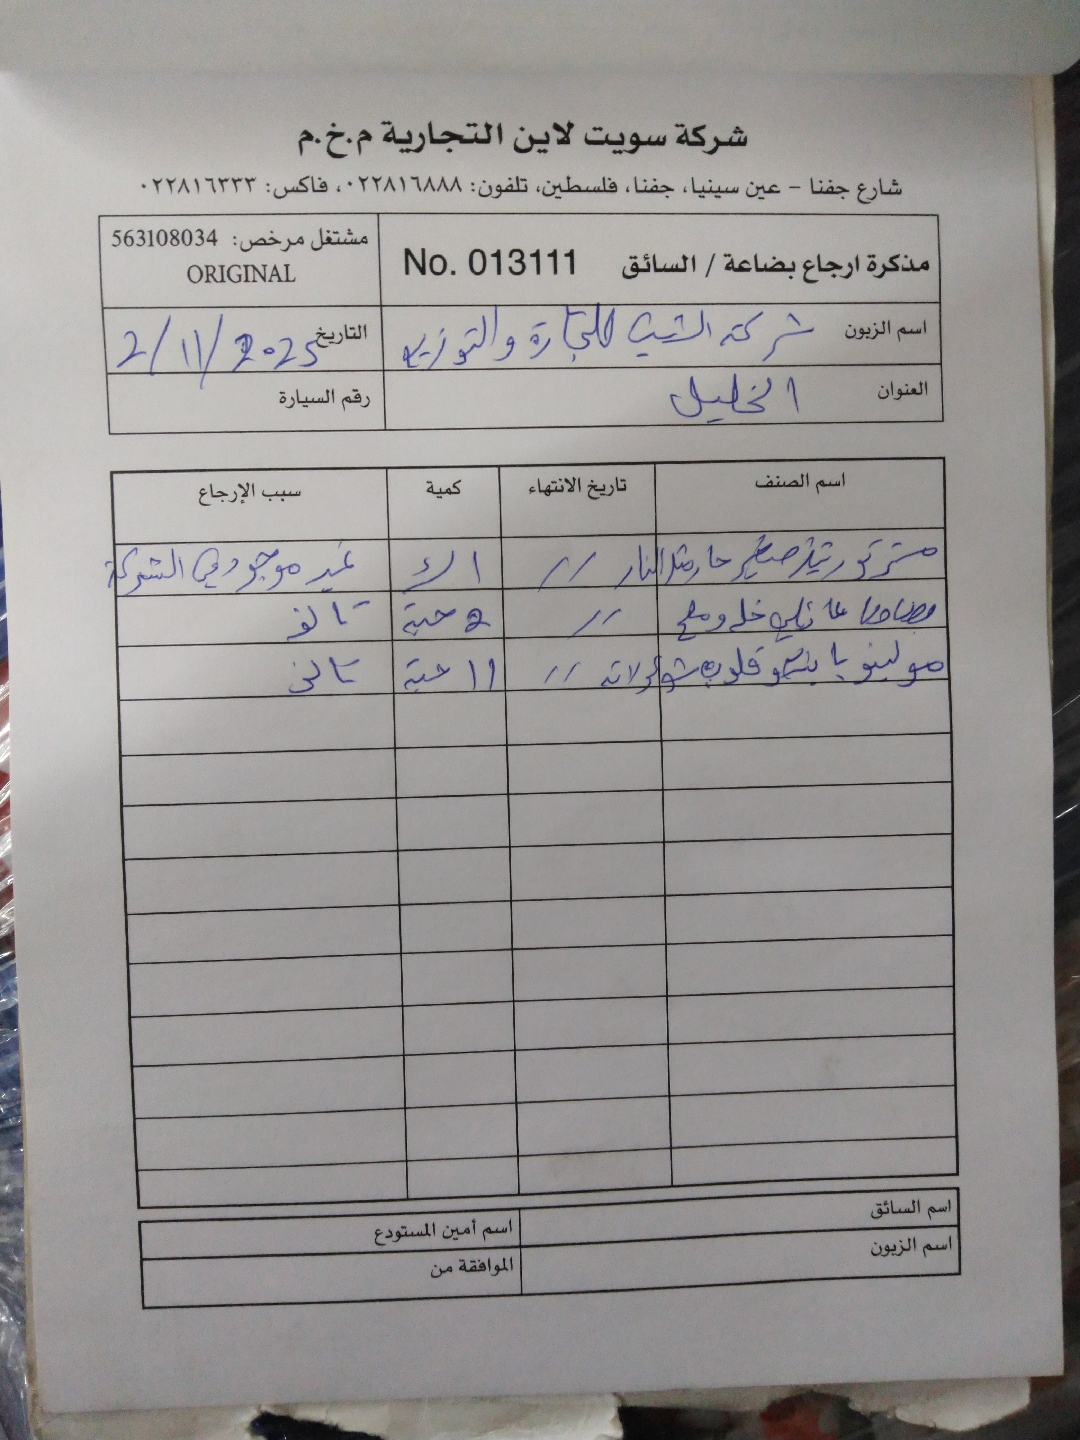 شركة سويت لاين التجارية م.خ.م
شارع جفنا - عين سينيا، جفنا، فلسطين، تلفون: ٠٢٢٨١٦٨٨٨، فاكس: ٠٢٢٨١٦٣٣٣
مذكرة ارجاع بضاعة / السائق No. 013111
مشتغل مرخص: 563108034
ORIGINAL
اسم الزبون شركة للتجارة والتوزيع التاريخ 2/11/2025
العنوان الخليل رقم السيارة
اسم الصنف تاريخ الانتهاء كمية سبب الإرجاع
حار النار // غير موجود في الشركة
خل وملح // حبة تالف
مولينو قلوب شوكولاته // 11 حبة تالف
اسم السائق اسم أمين المستودع
اسم الزبون الموافقة من